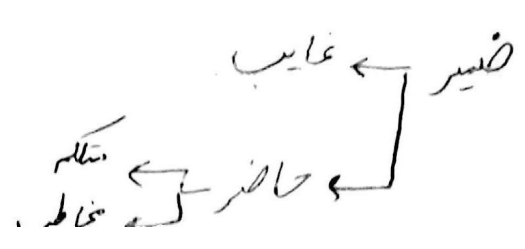 ضمیر ← غایب
حاضر ← متکلم
مخاطب